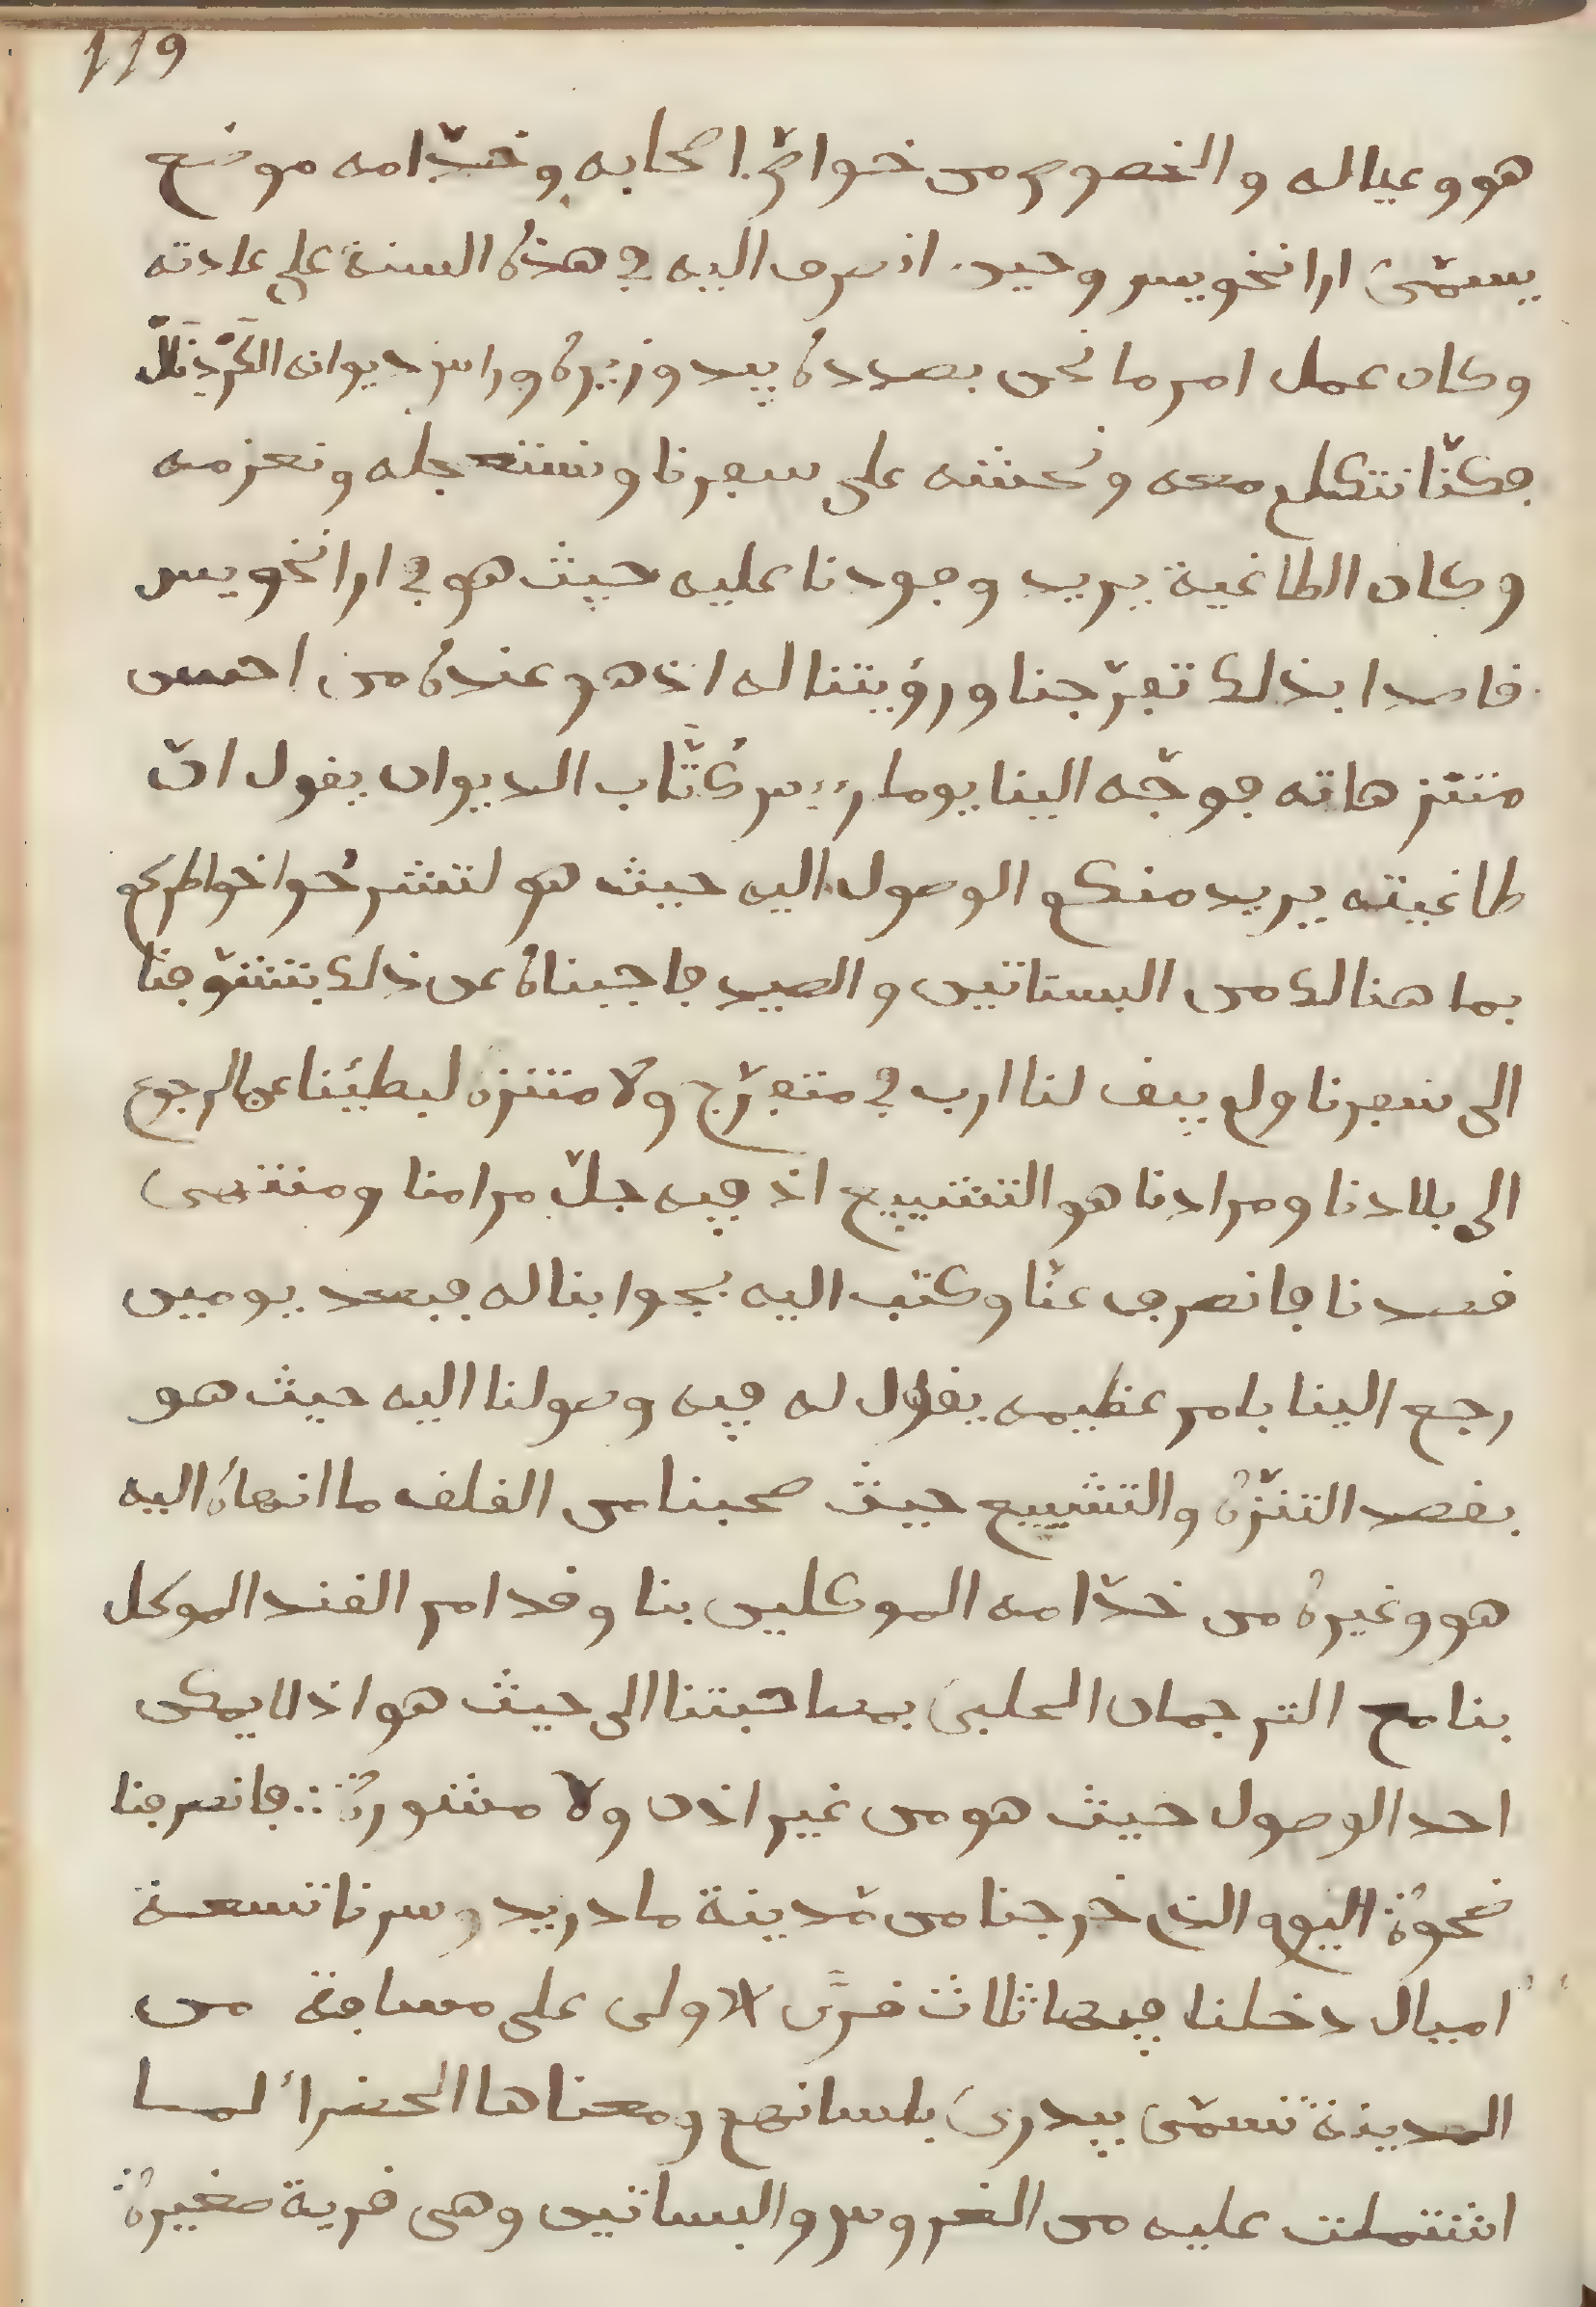 119
هو وعياله والخصوص من خواصّ اصحابه وخدّامه موضع
يسمّى ارانخويس وحيد انصرف اليه في هذه السنة على عادته
وكان عمل امر ما نحن بصدده بيد وزيره وراس ديوانه الكَرْدِنَال
فكنّا نتكلم معه ونحثه على سفرنا ونستعجله ونعزمه
وكان الطاغية يريد وفودنا عليه حيث هو في ارانخويس
قاصدا بذلك تفرّجنا ورؤيتنا له اذ هو عنده من احسن
منتزهاته فوجّه الينا يوما رييس كُتَّاب الديوان يقول انّ
طاغيته يريد منكم الوصول اليه حيث هو لتشرحوا خواطركم
بما هنالك من البساتين والصيد فاجبناه عن ذلك بتشوّفنا
الى سفرنا ولم يبق لنا ارب في متفرّج ولا متنزه لبطئنا عن الرجوع
الى بلادنا ومرادنا هو التشييع اذ فيه جلّ مرامنا ومنتهى
قصدنا فانصرف عنّا وكتب اليه بجوابنا له فبعد يومين
رجع الينا بامر عظيمه يقول له فيه وصولنا اليه حيث هو
بقصد التنزّه والتشييع حيث صحبنا من القلق ما انهاه اليه
هو وغيره من خدّامه الموكلين بنا وقد امر القند الموكل
بنا مع الترجمان الحلبي بمصاحبتنا الى حيث هو اذ لا يمكن
احد الوصول حيث هو من غير اذن ولا مشورة فانصرفنا
ضحوة اليوم الذي خرجنا من مدينة مادريد وسرنا تسعة
اميال دخلنا فيها ثلاث قرَى الاولى على مسافة من
المدينة تسمّى بيدرى بلسانهم ومعناها الخضراء لما
اشتملت عليه من الغروس والبساتين وهي قرية صغيرة